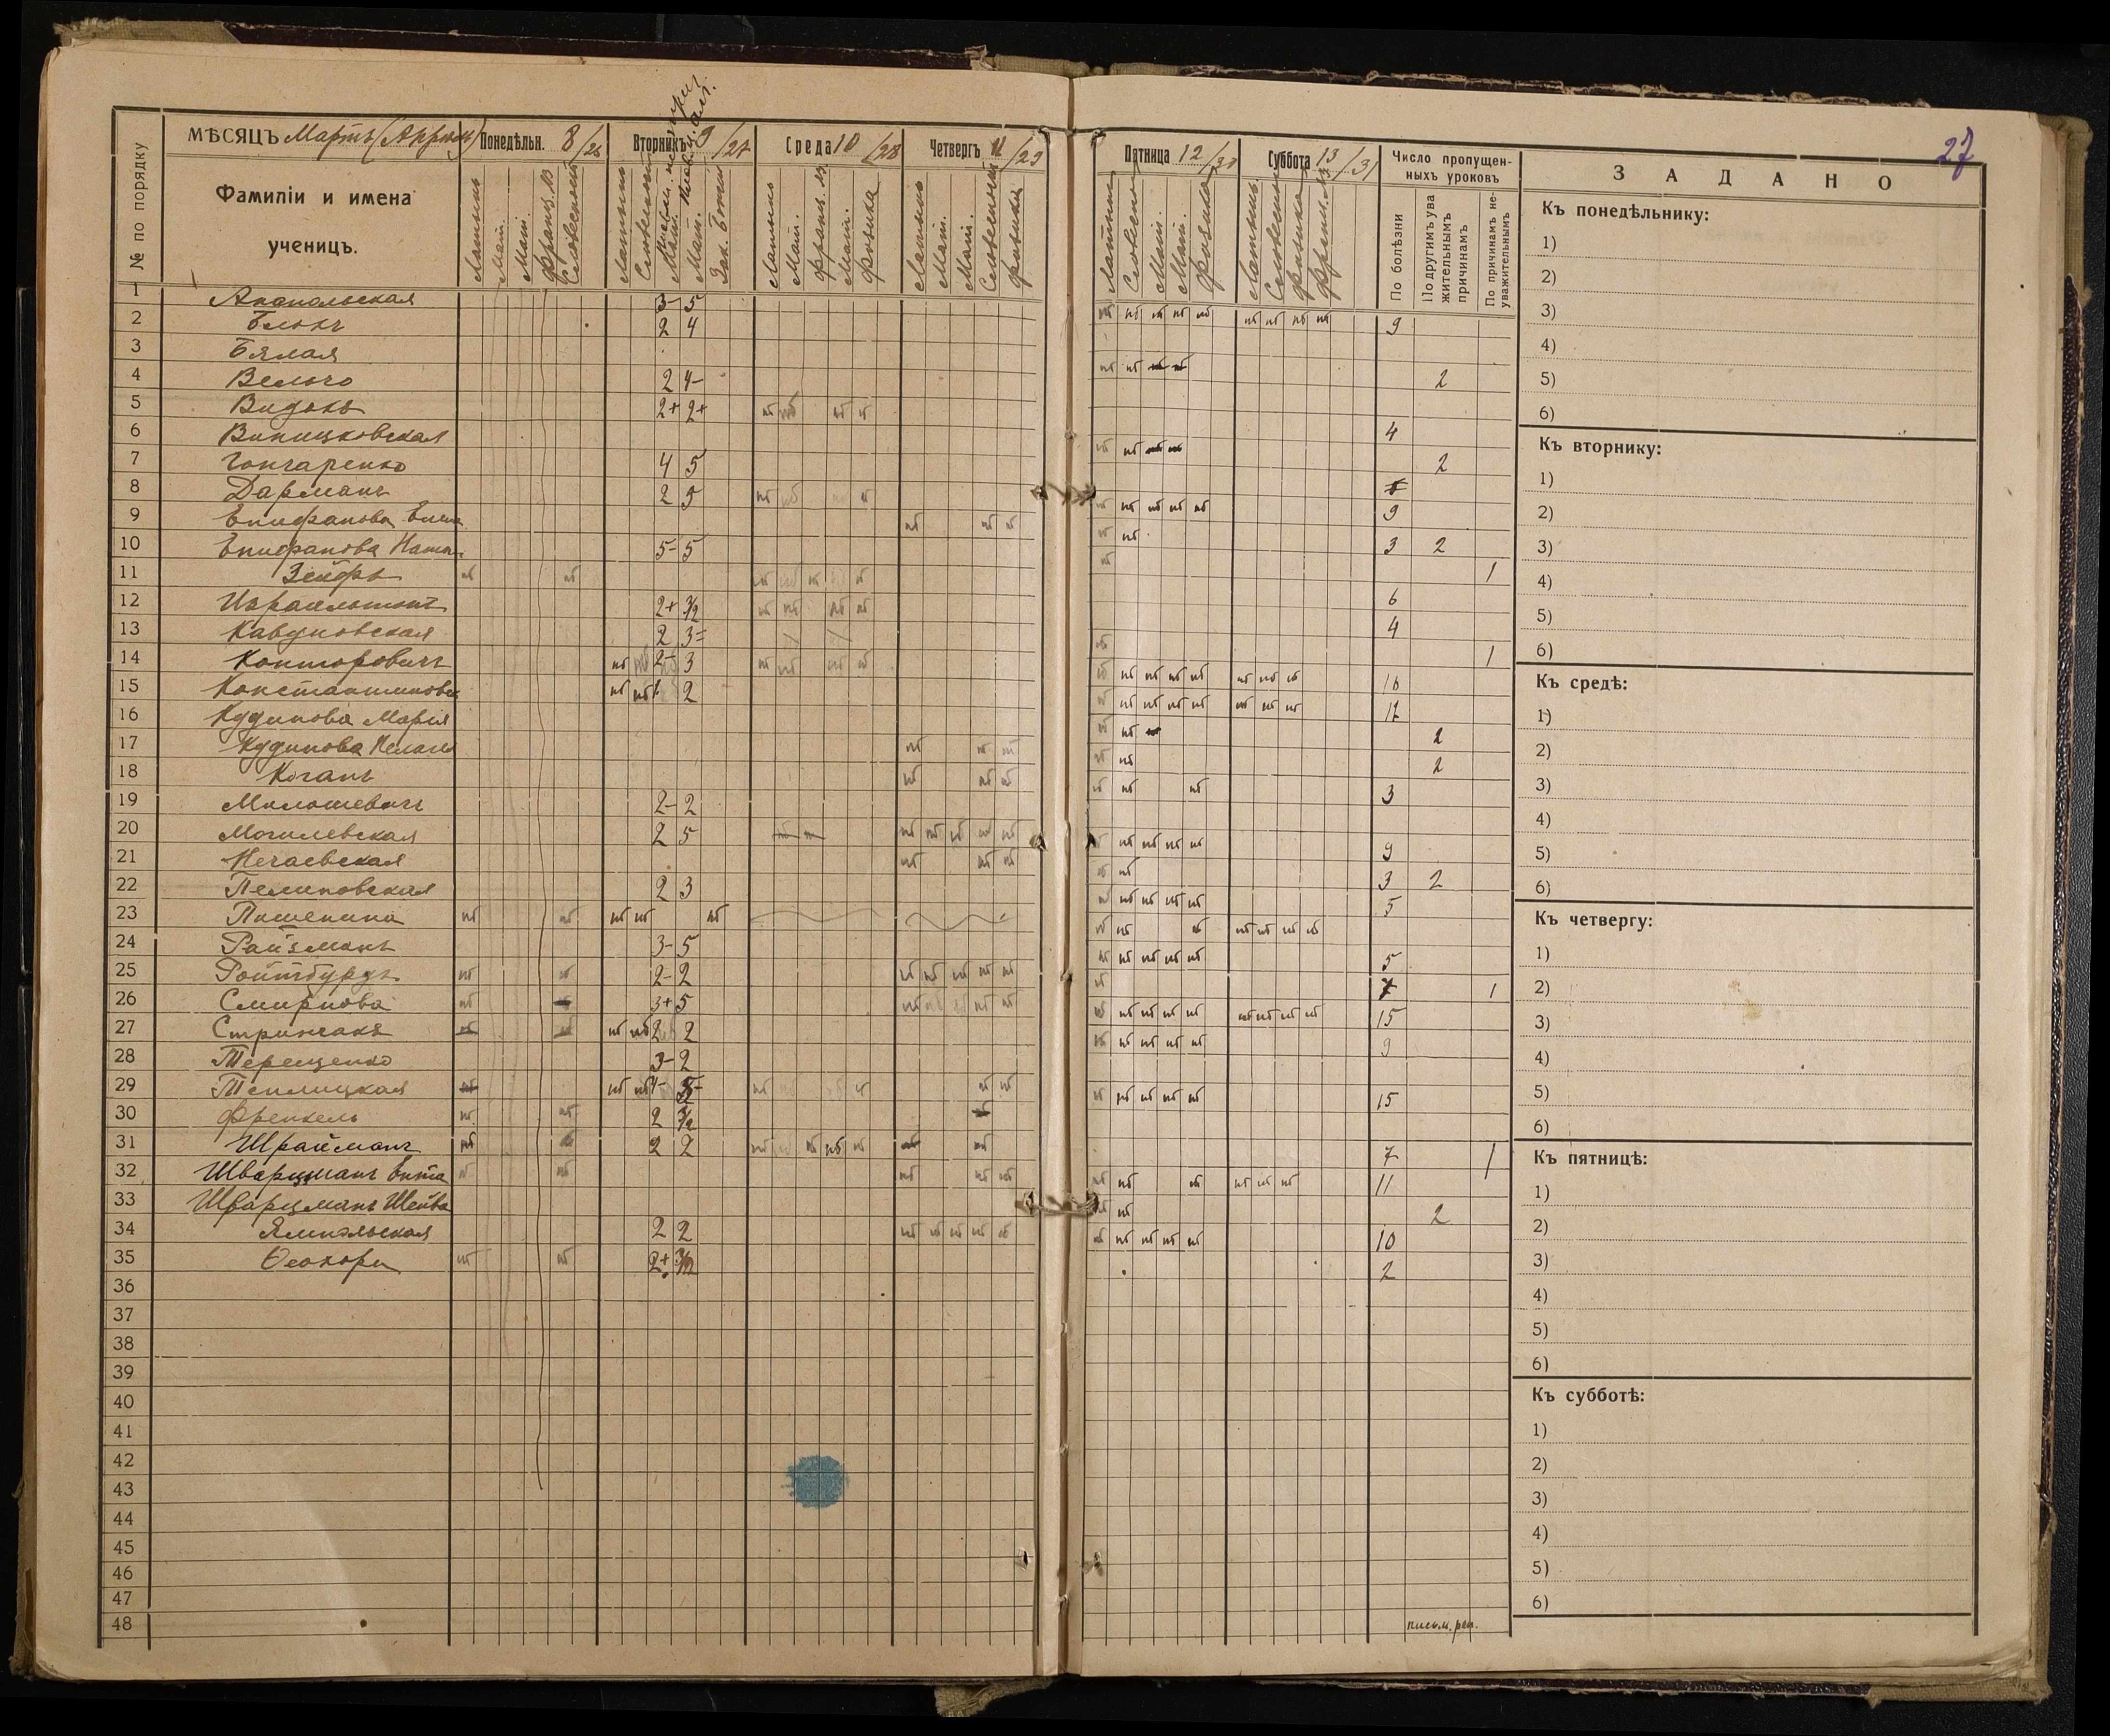 27
МѢСЯЦЪ Мартъ (Апрѣль)
Понедѣльн. 8/26
Вторникъ 9/27
Среда 10/28
Четвергъ 11/29
Пятница 12/30
Суббота 13/31
Число пропущен-
ныхъ уроковъ
ЗАДАНО
№ по порядку
Фамиліи и имена
ученицъ.
Латынь Мат. Мат. Франц. яз Словесность
Латынь Словесность Мат. Зак. Божій
Латынь Мат. Франц. яз. Мат. Физика
Латынь Мат. Мат. Словесность Физика
Латынь Словесн. Мат. Мат. Физика
Латынь. Словесн. Физика Франц. яз.
По болѣзни
По другимъ ува
жительнымъ
причинамъ
По причинамъ не-
уважительнымъ
1 Анапольская 3- 5 нб нб нб нб нб нб нб нб нб 9
2 Блокъ 2 4
3 Бялая нб нб нб нб 2
4 Велько 2 4-
5 Видокъ 2+ 2+ нб нб нб нб 4
6 Виницковская нб нб нб нб 2
7 Гончаренко 4 5
8 Дарманъ 2 5 нб нб нб нб нб нб нб нб 9
9 Епифанова Елена нб нб нб нб нб 3 2
10 Епифанова Натал. 5- 5 нб 1
11 Зейфъ нб нб нб нб нб нб нб 6
12 Израильтонъ 2+ 3/2 нб нб нб нб 4
13 Кавуновская 2 3= нб 1
14 Конторовичъ нб нб 2- 3 нб нб нб нб нб нб нб нб нб нб нб нб 16
15 Константиновск нб нб 2 нб нб нб нб нб нб нб нб 12
16 Кудинова Марія нб нб нб 2
17 Кудинова Пелаге нб нб нб нб нб 2
18 Коганъ нб нб нб нб нб нб 3
19 Милошевичъ 2- 2
20 Могилевская 2 5 нб нб нб нб нб нб нб нб нб нб 9
21 Нечаевская нб нб нб нб нб 3 2
22 Пелиновская 2 3 нб нб нб нб нб 5
23 Пшенина нб нб нб нб нб нб нб нб нб нб нб нб
24 Райзманъ 3- 5 нб нб нб нб нб 5
25 Ройтбурдъ нб нб 2- 2 нб нб нб нб нб нб 1
26 Смирнова нб нб 3+ 5 нб нб нб нб нб нб нб нб нб нб нб нб нб нб 15
27 Стринчакъ нб нб нб нб 2 2 нб нб нб нб нб 9
28 Терещенко 3- 2
29 Теплицкая нб нб нб нб нб нб нб нб нб нб нб нб 15
30 Френкель нб нб 2 3/2 нб
31 Шрайманъ нб нб 2 2 нб нб нб нб нб нб нб 7 1
32 Шварцманъ Ента нб нб нб нб нб нб нб нб нб нб нб 11
33 Шварцманъ Шейва нб нб 2
34 Ямпольская 2 2 нб нб нб нб нб нб нб нб нб нб 10
35 Ѳеохори нб нб 2+ 2
36
37
38
39
40
41
42
43
44
45
46
47
48
письм. рон.
Къ понедѣльнику:
1)
2)
3)
4)
5)
6)
Къ вторнику:
1)
2)
3)
4)
5)
6)
Къ средѣ:
1)
2)
3)
4)
5)
6)
Къ четвергу:
1)
2)
3)
4)
5)
6)
Къ пятницѣ:
1)
2)
3)
4)
5)
6)
Къ субботѣ:
1)
2)
3)
4)
5)
6)